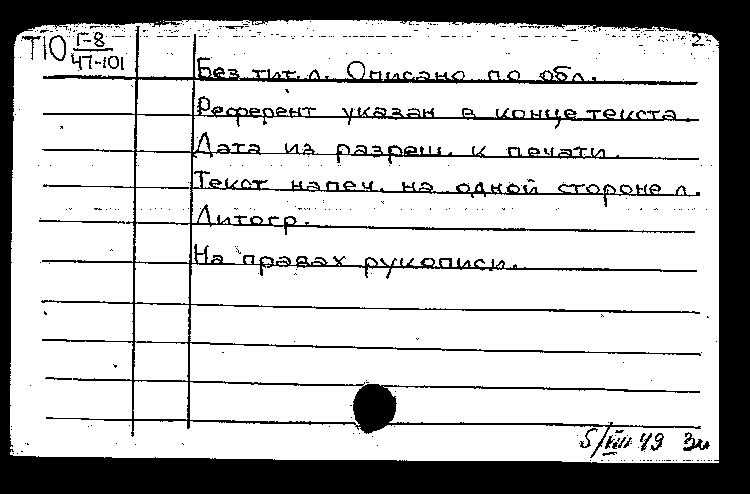 ТЮ Г-8
47-101
2
Без тит. л. Описано по обл.
Референт указан в конце текста.
Дата из разреш. к печати.
Текст напеч. на одной стороне л.
Литогр.
На правах рукописи.
5/VIII 49